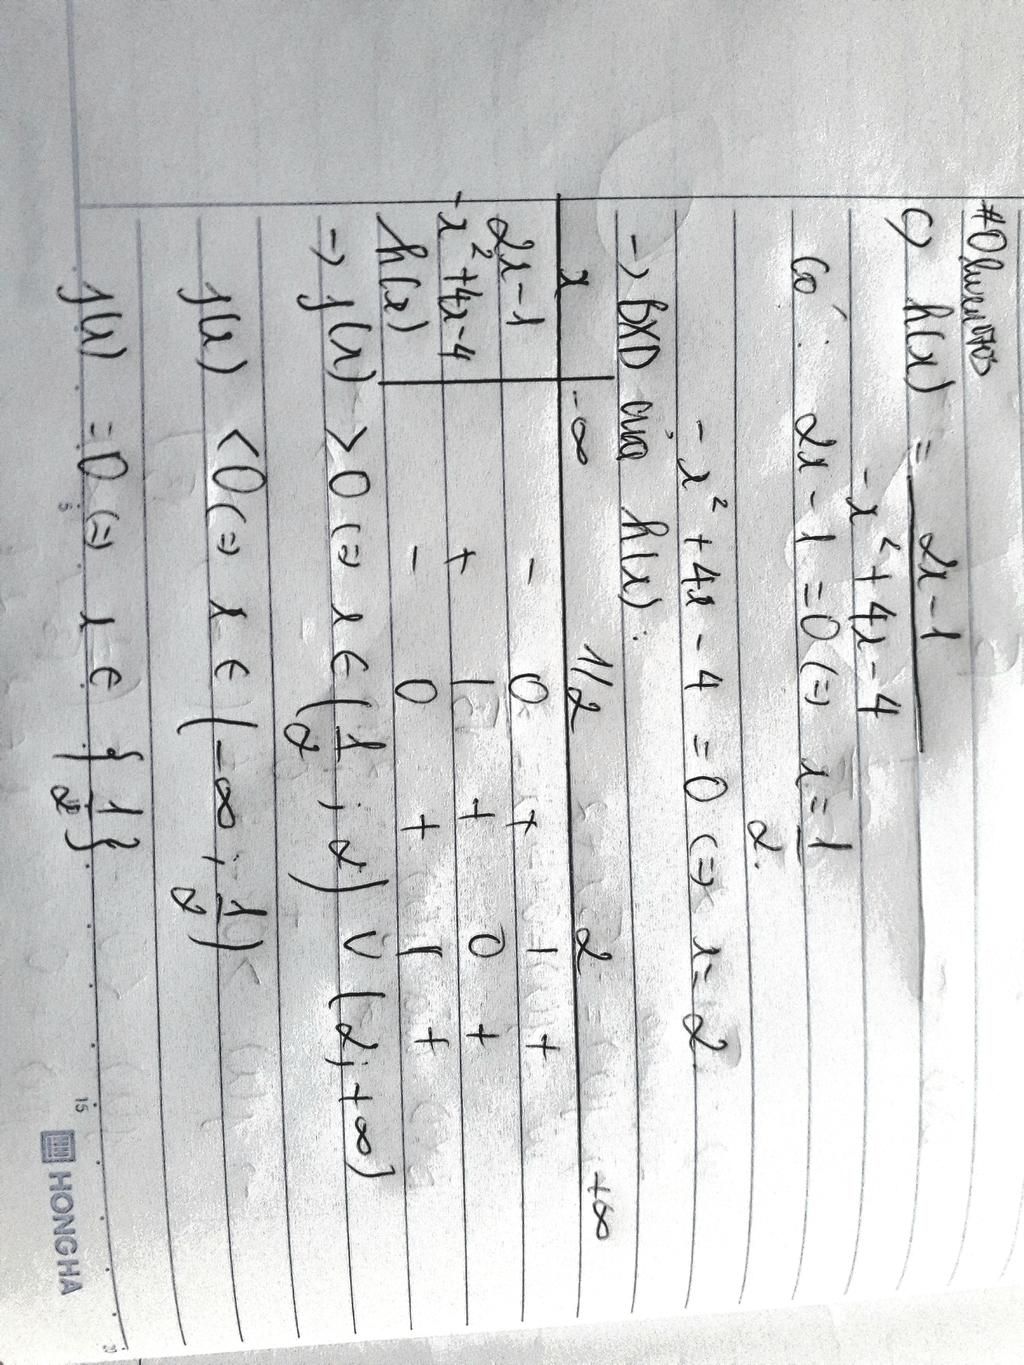 c) h(x) = 2x - 1
-x² + 4x - 4
Có: 2x - 1 = 0 (=) x = 1
2.
- x² + 4x - 4 = 0 (=) x = 2
-> BXD của h(x):
x -∞ 1/2 2 +∞
2x-1 - 0 + | +
-x²+4x-4 + | + 0 +
h(x) - 0 + | +
-> f(x) > 0 (=) x ∈ (1/2 ; 2) ∪ (2; +∞)
f(x) < 0 (=) x ∈ (-∞ ; 1/2)
f(x) = 0 (=) x ∈ {1/2}
5 15 20
HONG HA